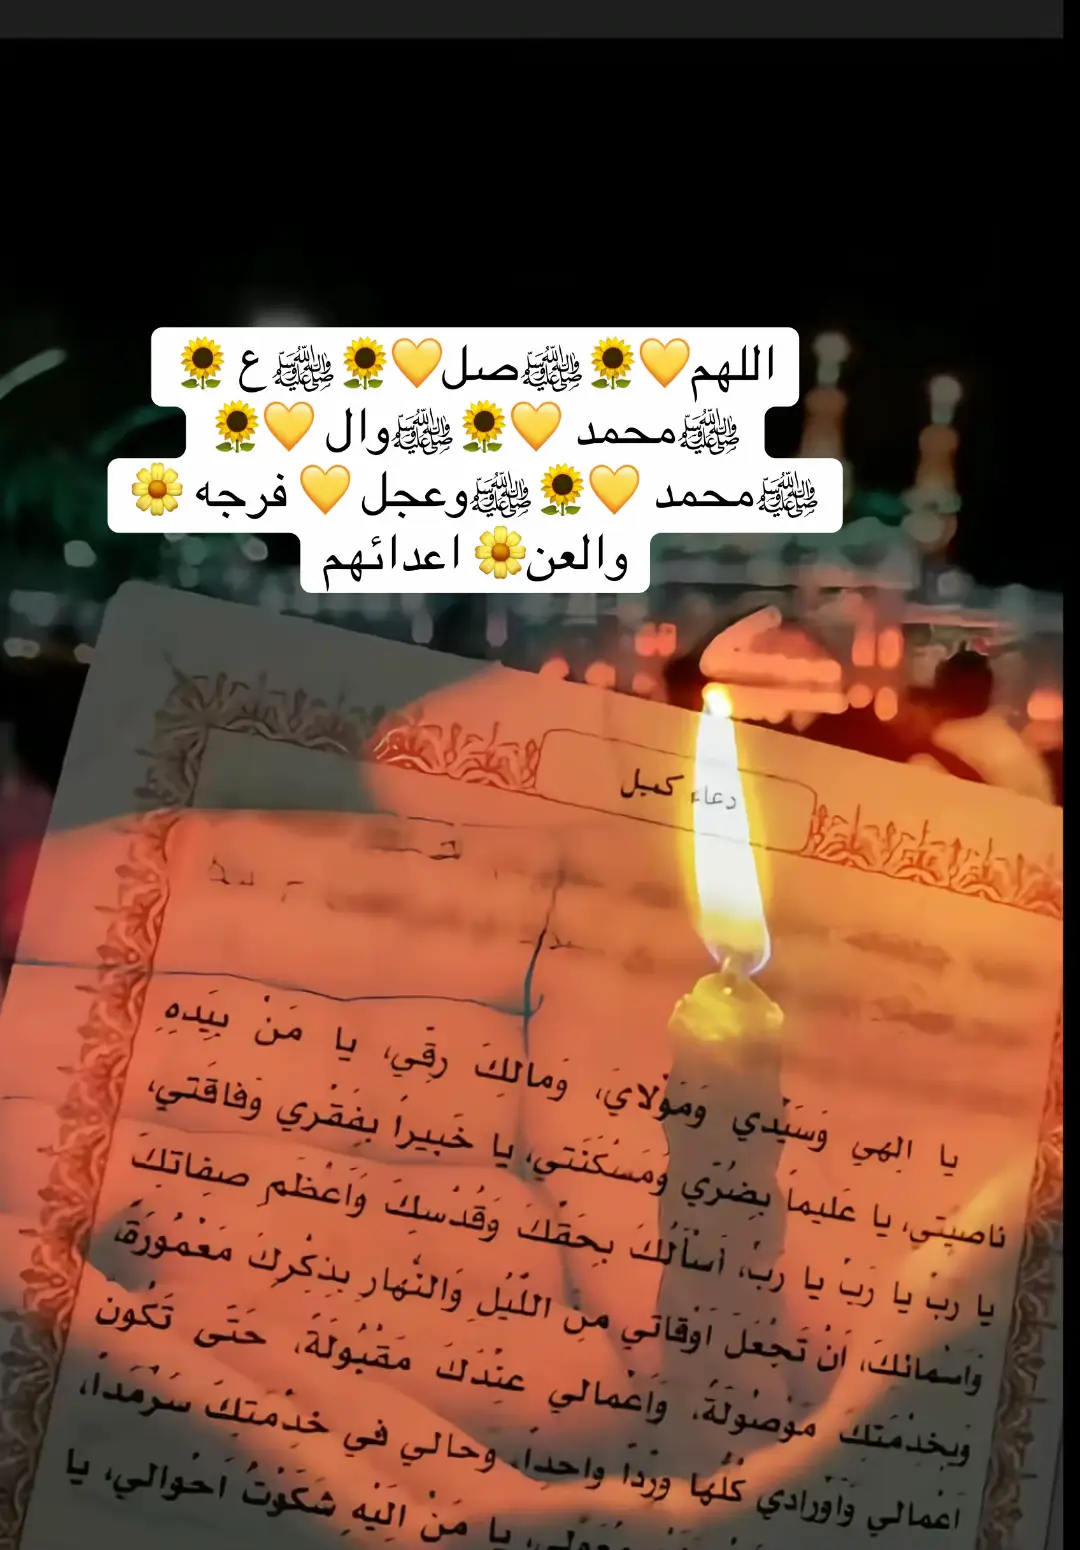 اللهم💛🌻ﷺصل💛🌻ﷺع 🌻
ﷺمحمد 💛🌻ﷺوال 💛🌻
ﷺمحمد 💛🌻ﷺوعجل 💛 فرجه 🌼
والعن🌼 اعدائهم
دعاء كميل
يا اِلهي وَسَيِّدي وَمَوْلايَ، وَمالِكَ رِقّي، يا مَنْ بِيَدِهِ
ناصيَتي، يا عَليماً بِضُرّي وَمَسْكَنَتي، يا خَبيراً بِفَقْري وَفاقَتي،
يا رَبِّ يا رَبِّ يا رَبِّ، اَسْأَلُكَ بِحَقِّكَ وَقُدْسِكَ وَاَعْظَمِ صِفاتِكَ
وَاَسْمائِكَ، اَنْ تَجْعَلَ اَوْقاتي مِنَ اللَّيْلِ وَالنَّهارِ بِذِكْرِكَ مَعْمُورَةً،
وَبِخِدْمَتِكَ مَوْصُولَةً، وَاَعْمالي عِنْدَكَ مَقْبُولَةً، حَتّى تَكُونَ
اَعْمالي وَاَوْرادي كُلُّها وِرْداً واحِداً، وَحالي في خِدْمَتِكَ سَرْمَداً،
مُعَوَّلي، يا مَنْ اِلَيْهِ شَكَوْتُ اَحْوالي، يا